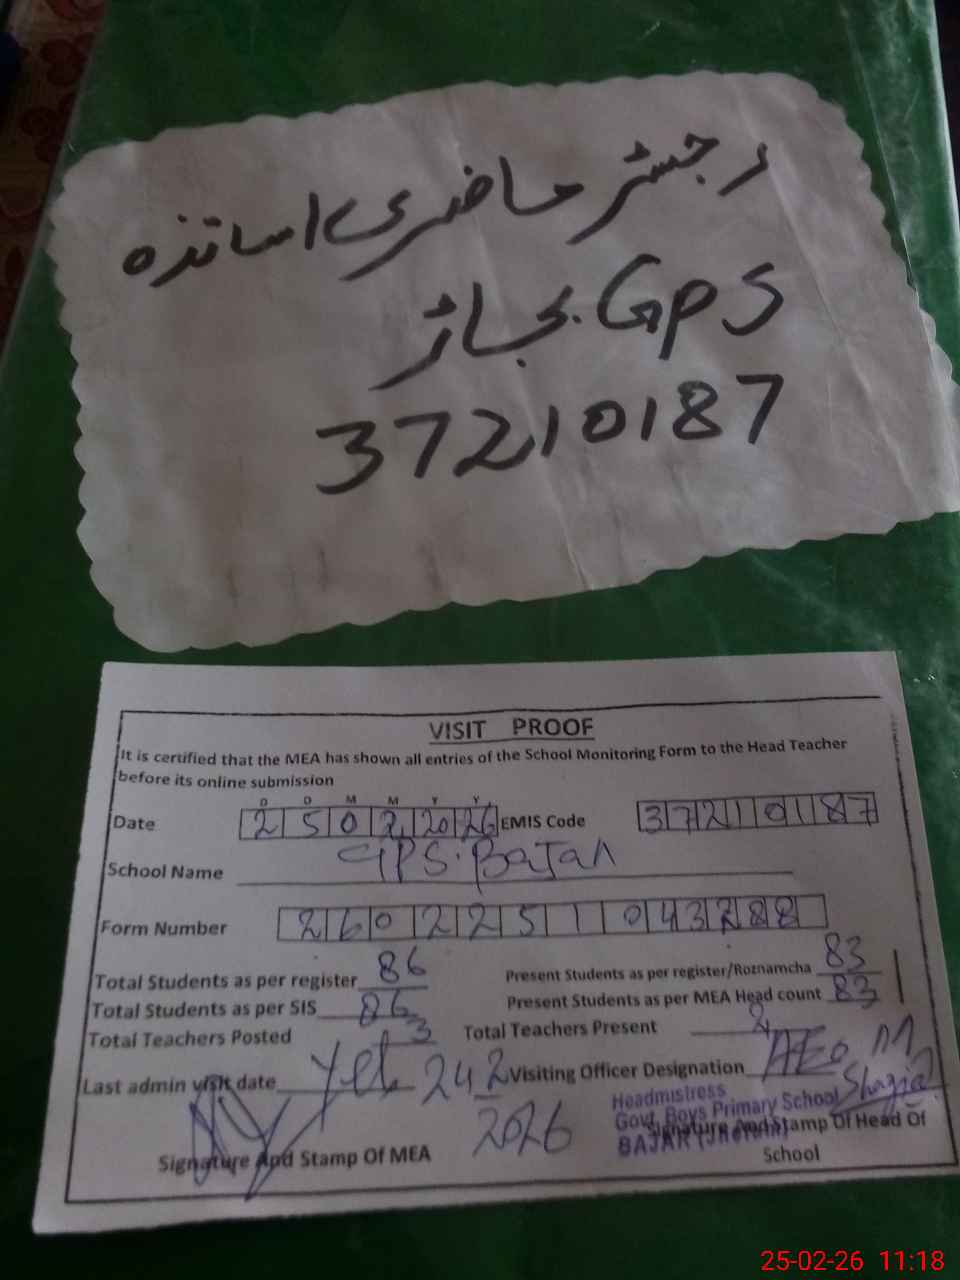 رجسٹر حاضری اساتذہ
GPS بجاڑ
37210187
VISIT PROOF
It is certified that the MEA has shown all entries of the School Monitoring Form to the Head Teacher
before its online submission
D D M M Y Y
Date 25 02 2026 EMIS Code 37210187
School Name GPS. Bajar
Form Number 2602251043288
Total Students as per register 86 Present Students as per register/Roznamcha 83
Total Students as per SIS 86 Present Students as per MEA Head count 83
Total Teachers Posted 3 Total Teachers Present 2
Last admin visit date Yes 24 2 2026 Visiting Officer Designation AEO
Shazia
Headmistress
Govt. Boys Primary School
BAJAR
Signature And Stamp Of MEA Signature And Stamp Of Head Of
School
25-02-26 11:18